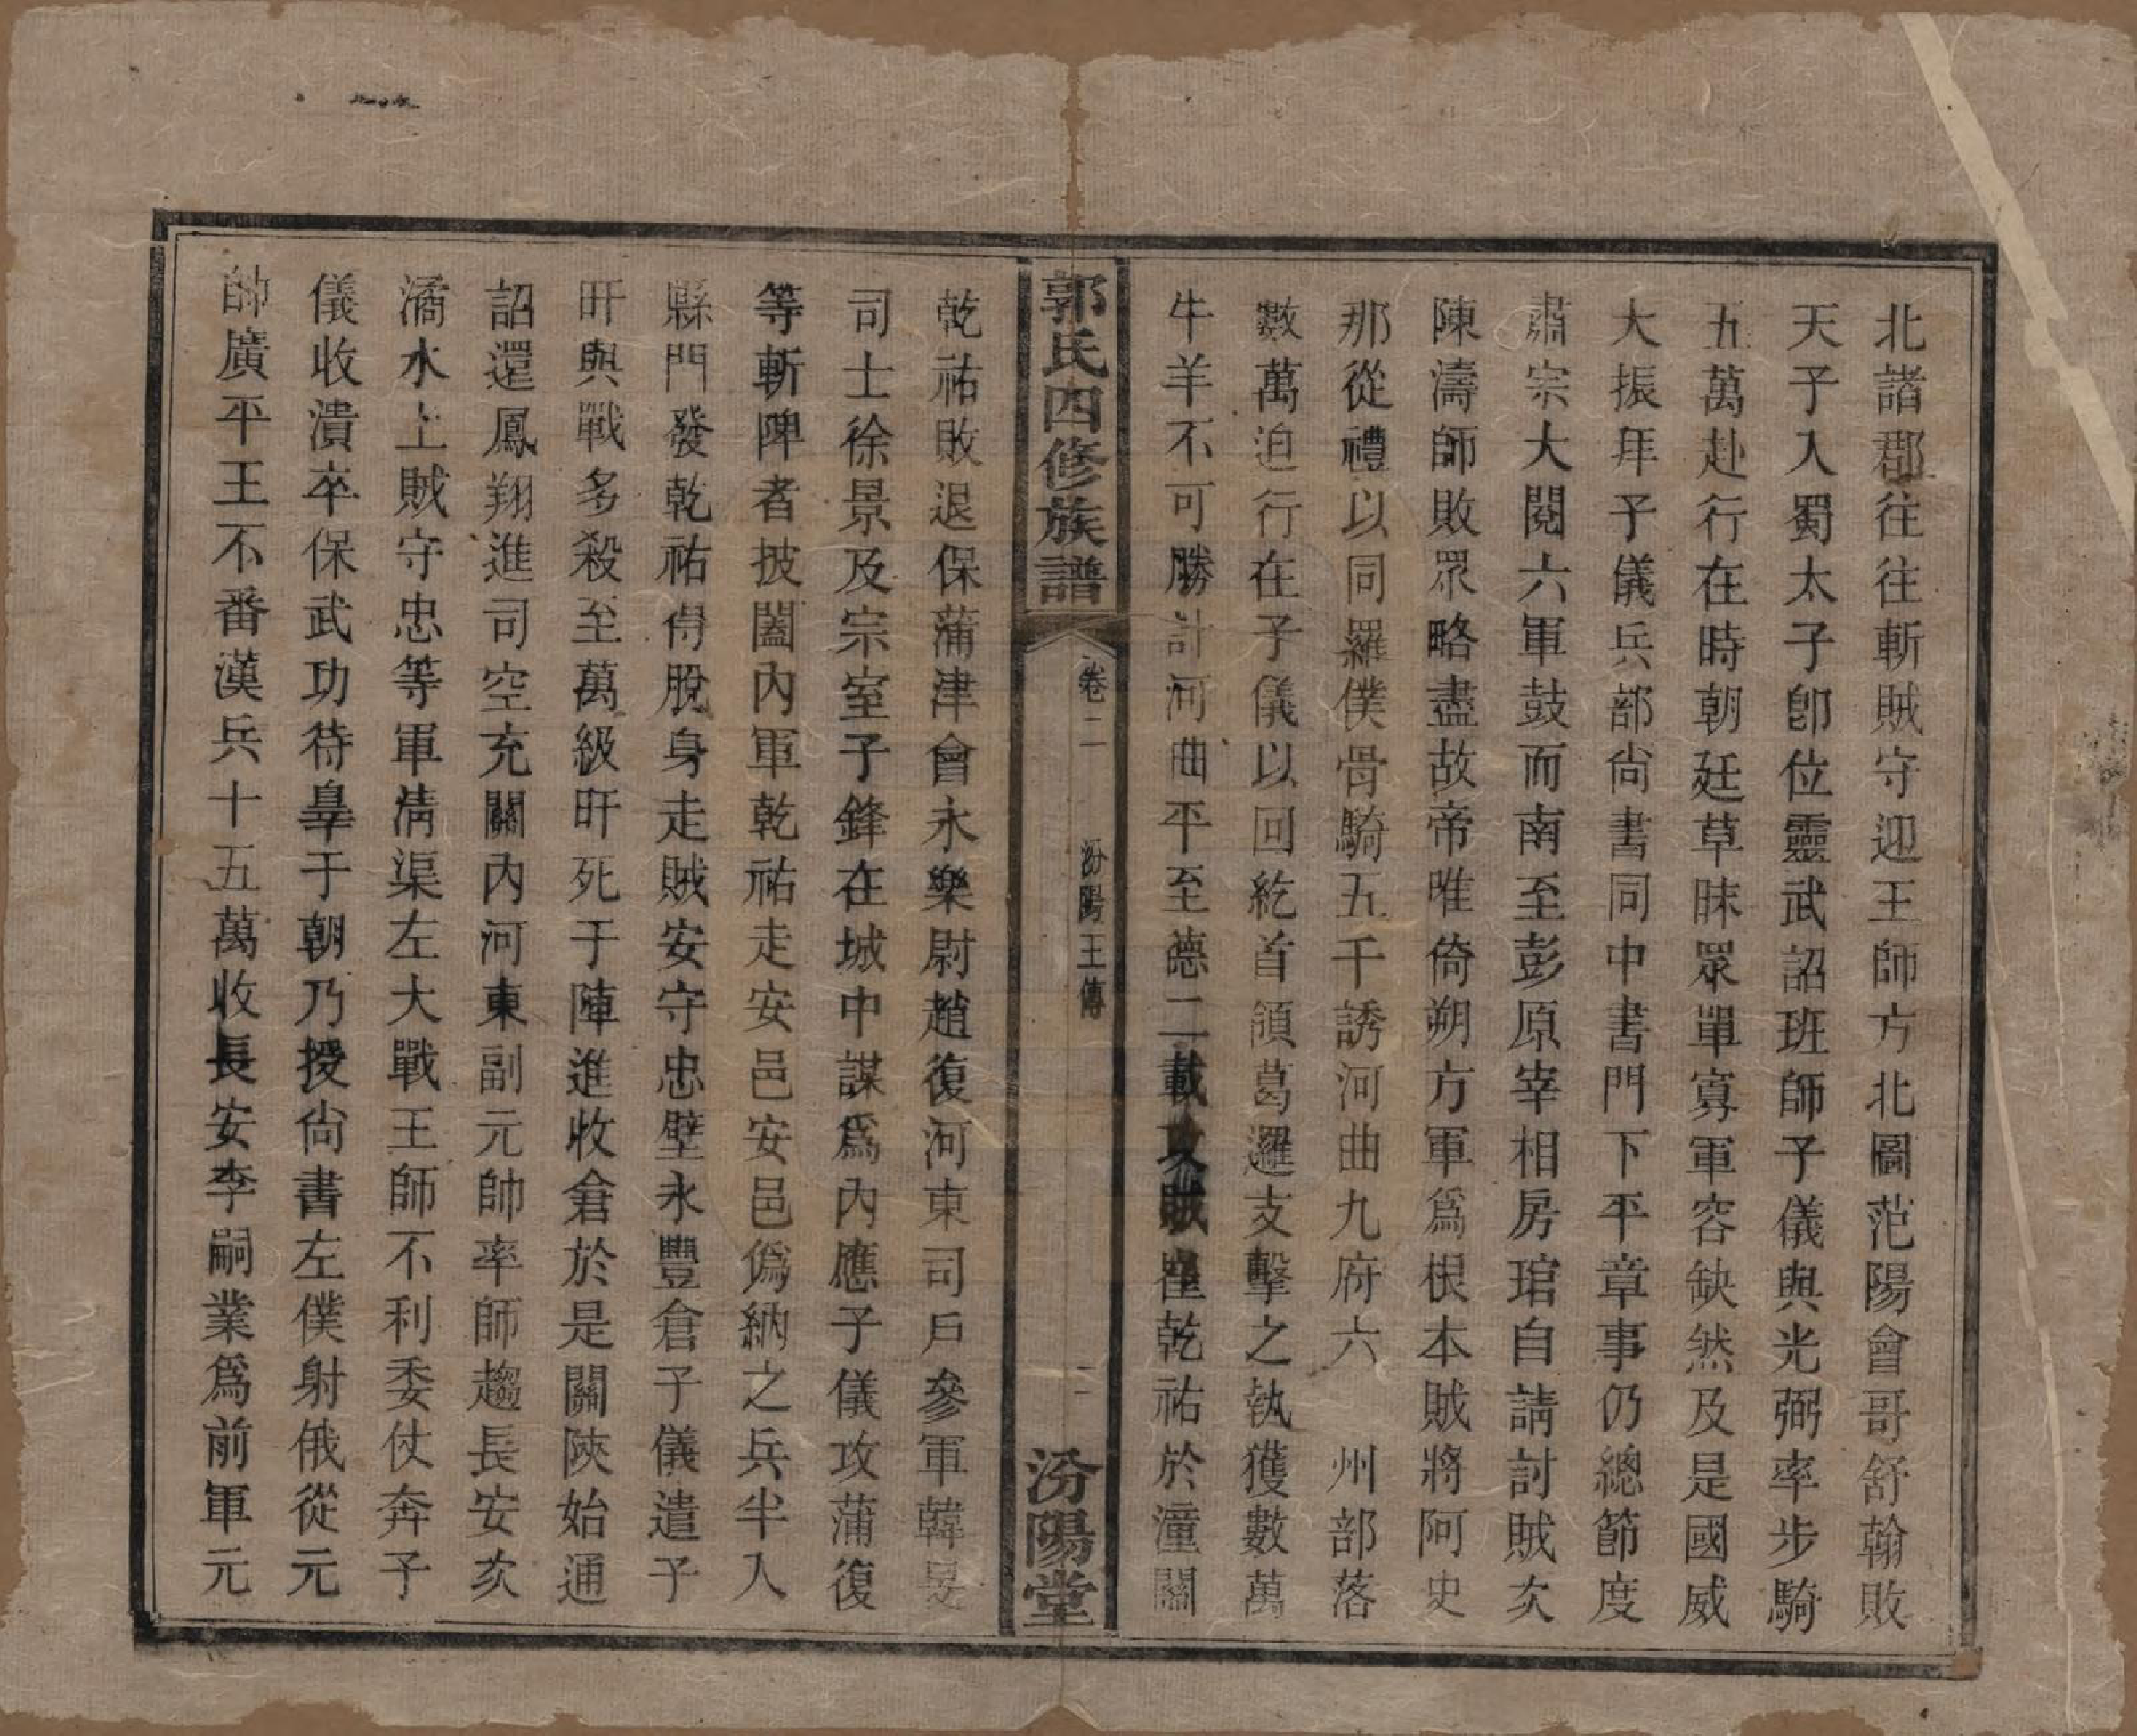 北諸郡往往斬賊守迎王師方北圖范陽會哥舒翰敗
天子入蜀太子卽位靈武詔班師子儀與光弼率步騎
五萬赴行在時朝廷草昧眾單寡軍容缺然及是國威
大振拜子儀兵部尙書同中書門下平章事仍總節度
肅宗大閱六軍鼓而南至彭原宰相房琯自請討賊次
陳濤師敗眾略盡故帝唯倚朔方軍爲根本賊將阿史
那從禮以同羅僕骨騎五千誘河曲九府六　州部落
數萬迫行在子儀以回紇首領葛邏支擊之執獲數萬
牛羊不可勝計河曲平至德二載攻賊崔乾祐於潼關
郭氏四修族譜
卷二
汾陽王傳
二
汾陽堂
乾祐敗退保蒲津會永樂尉趙復河東司戶參軍韓旻
司士徐景及宗室子鋒在城中謀爲內應子儀攻蒲復
等斬陴者披闔內軍乾祐走安邑安邑僞納之兵半入
縣門發乾祐得脫身走賊安守忠壁永豐倉子儀遣子
旰與戰多殺至萬級旰死于陣進收倉於是關陝始通
詔還鳳翔進司空充關內河東副元帥率師趨長安次
潏水上賊守忠等軍清渠左大戰王師不利委仗奔子
儀收潰卒保武功待辠于朝乃授尙書左僕射俄從元
帥廣平王不番漢兵十五萬收長安李嗣業爲前軍元